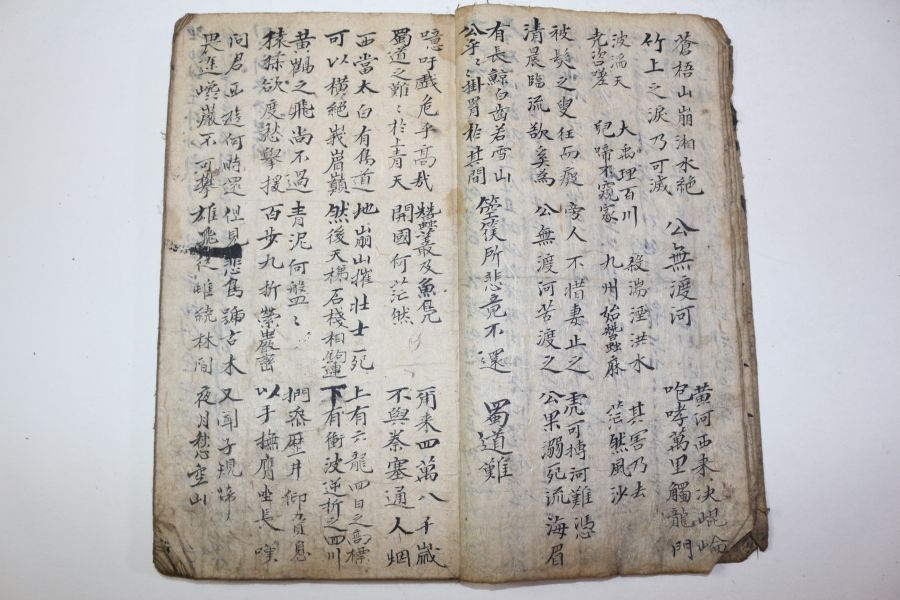 蒼梧山崩湘水絶
竹上之淚乃可滅
公無渡河
黃河西來决崐崙
咆哮萬里觸龍門
波滔天
堯咨嗟
大禹理百川
兒啼不窺家
殺湍湮洪水
九州始蠶麻
其害乃去
茫然風沙
被髮之叟狂而癡
清晨臨流欲奚爲
旁人不惜妻止之
公無渡河苦渡之
虎可搏河難憑
公果溺死流海眉
有長鯨白齒若雪山
公乎〻〻掛罥於其間
箜篌所悲竟不還
蜀道難
噫吁戲危乎高哉
蜀道之難〻於上青天
蠶叢及魚鳧
開國何茫然
爾來四萬八千歲
不與秦塞通人烟
西當太白有鳥道
可以橫絶峩眉巔
地崩山摧壯士死
然後天梯石棧相鉤連
上有六龍回日之高標
下有衝波逆折之回川
黃鶴之飛尚不過
猿猱欲度愁攀援
青泥何盤〻
百步九折縈巖
捫叅歷井仰脅息
以手撫膺坐長嘆
問君西遊何時還
畏途巉巖不可攀
但見悲鳥號古木
雄飛從雌繞林間
又聞子規啼
夜月愁空山